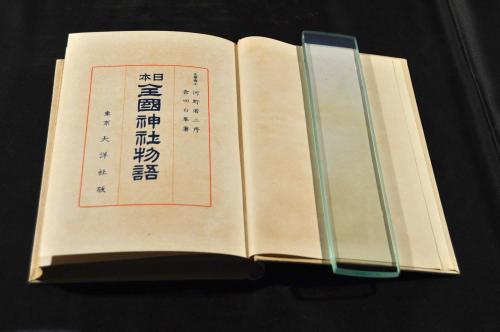 河野省三序
日本
全國神社物語
東京 大洋社版